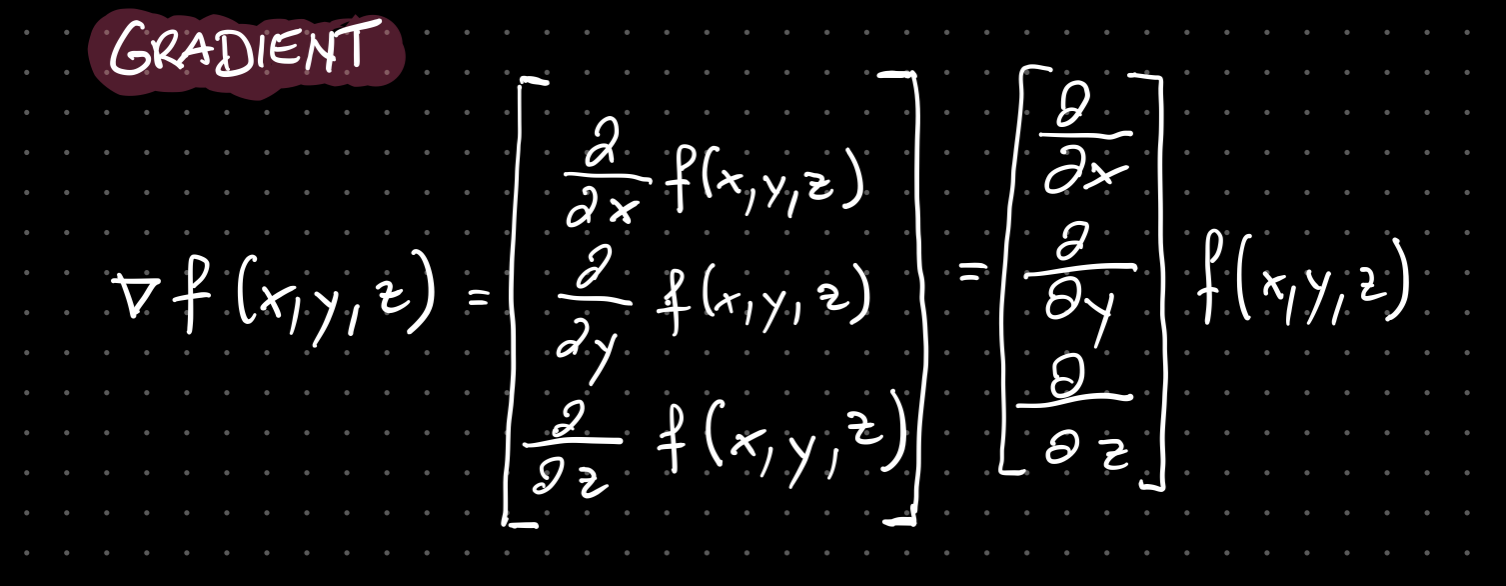 GRADIENT
∇f(x,y,z) = [∂/∂x f(x,y,z) ∂/∂y f(x,y,z) ∂/∂z f(x,y,z)] = [∂/∂x ∂/∂y ∂/∂z] f(x,y,z)